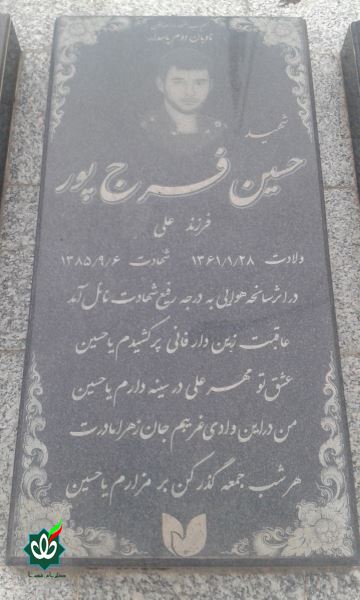 ناوبان دوم پاسدار
شهید
حسین فرج پور
فرزند علی
ولادت ۱۳۶۱/۱/۲۸ شهادت ۱۳۸۵/۹/۶
در اثر سانحه هوایی به درجه رفیع شهادت نائل آمد
عاقبت زین دار فانی پر کشیدم یا حسین
عشق تو مهر علی در سینه دارم یا حسین
من در این وادی غریبم جان زهرا مادرت
هر شب جمعه گذر کن بر مزارم یا حسین